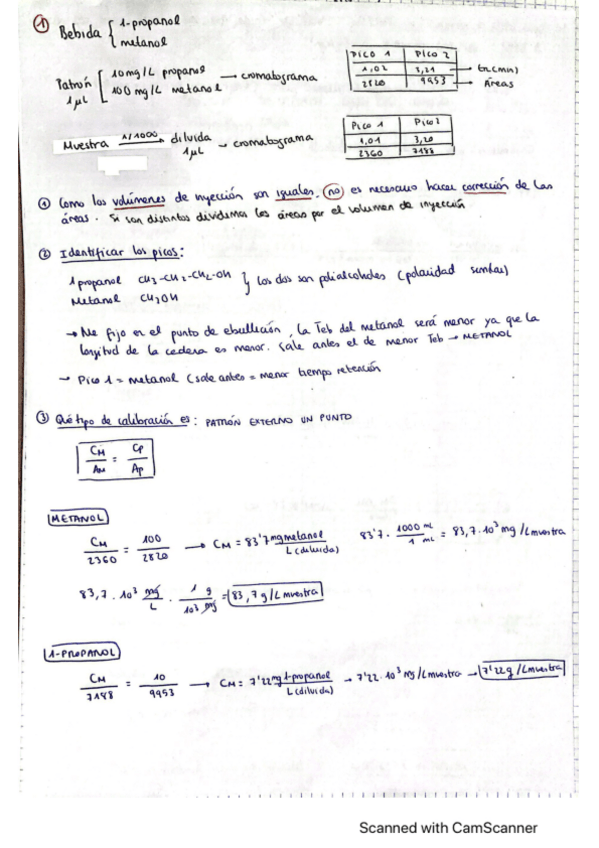 ① Bebida { 1-propanol
metanol
Patrón 1µL [ 10mg/L propanol
100 mg/L metanol → cromatograma
Pico 1 | Pico 2
1,02 | 3,21 → tr (min)
2820 | 9953 → Áreas
Muestra 1/1000 → diluida 1µL → cromatograma
Pico 1 | Pico 2
1,01 | 3,20
2360 | 7188
① Como los volúmenes de inyección son iguales, no es necesario hacer corrección de las
áreas. Si son distintos dividimos las áreas por el volumen de inyección
② Identificar los picos:
1 propanol CH3-CH2-CH2-OH
Metanol CH3OH } los dos son polialcoholes (polaridad similar)
→ Me fijo en el punto de ebullición, la Teb del metanol será menor ya que la
longitud de la cadena es menor. Sale antes el de menor Teb → METANOL
→ Pico 1 = metanol (sale antes = menor tiempo retención
③ Qué tipo de calibración es: PATRÓN EXTERNO UN PUNTO
CM/AM = CP/AP
METANOL
CM/2360 = 100/2820 → CM = 83'7 mg metanol/L (diluida) 83'7 · 1000 mL/1 mL = 83,7·10³ mg/L muestra
83,7·10³ mg/L · 1 g/10³ mg = 83,7 g/L muestra
1-PROPANOL
CM/7188 = 10/9953 → CM = 7'22 mg 1-propanol/L (diluida) → 7'22·10³ mg/L muestra → 7'22 g/L muestra
Scanned with CamScanner